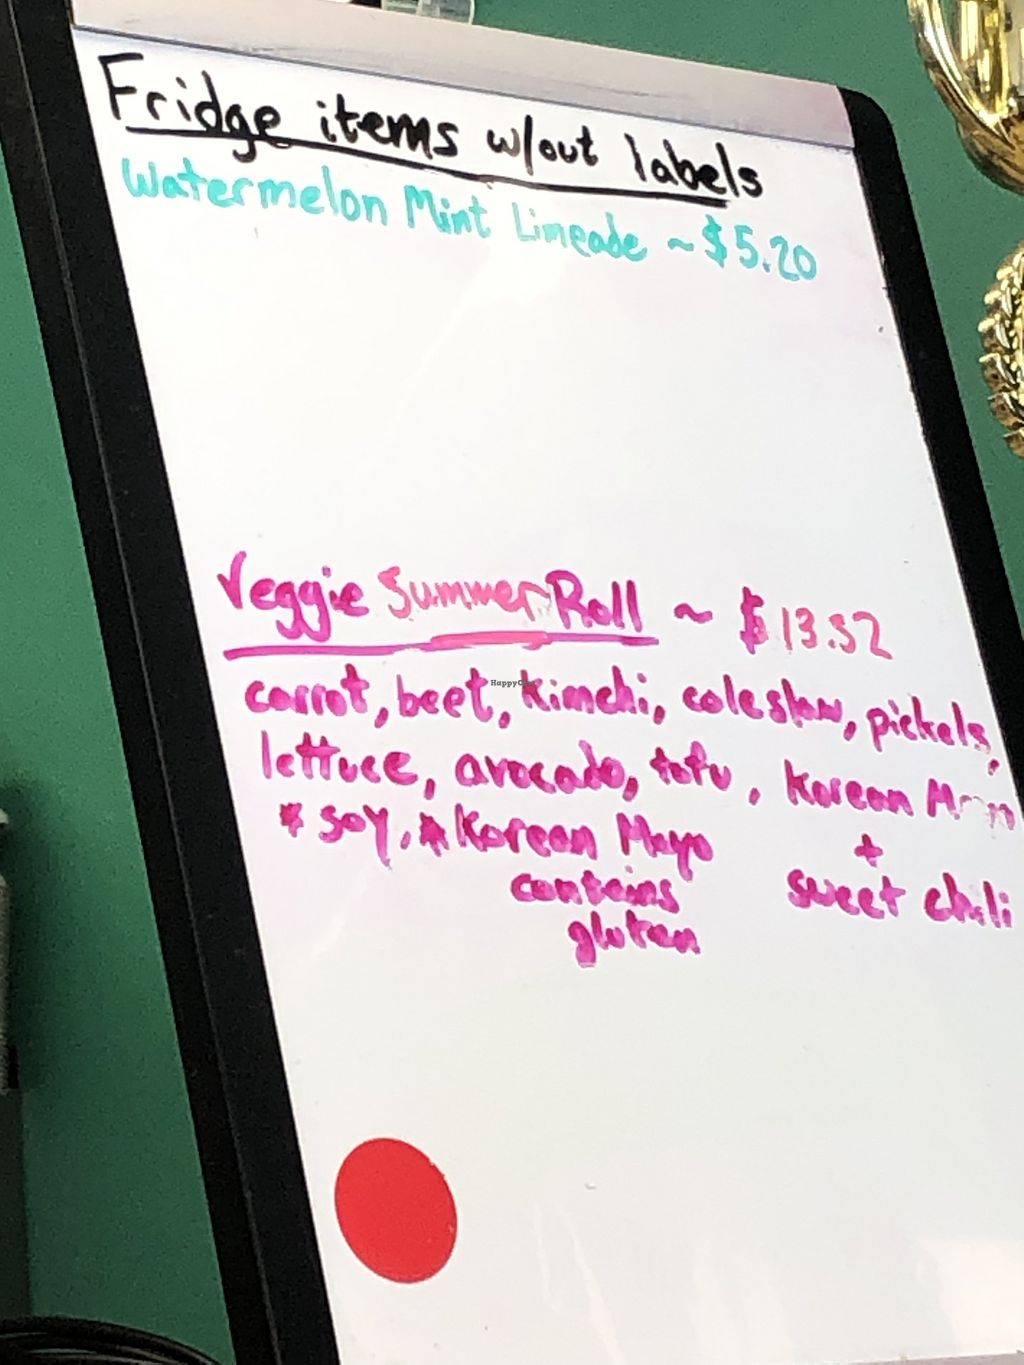 Fridge items w/out labels
Watermelon Mint Limeade ~ $5.20
Veggie Summer Roll ~ $13.52
carrot, beet, kimchi, coleslaw, pickels,
lettuce, avocado, tofu, Korean
+
sweet chili
* soy, * Korean Mayo
contains
gluten